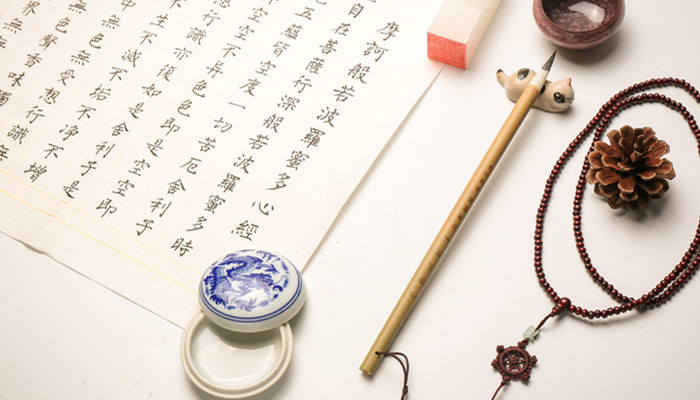 摩訶般若波羅蜜多心經
自在菩薩行深般若波羅蜜多時
五蘊皆空度一切苦厄舍利子
空空不異色色即是空空即
想行識亦復如是舍利子是
不生不滅不垢不淨不增
無色無受想行識無
色聲香味觸
界無